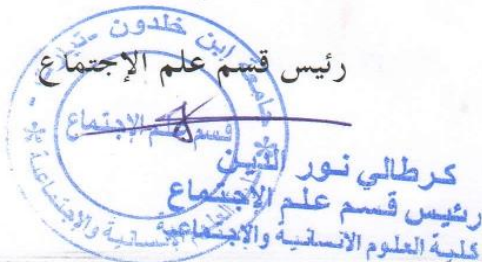 رئيس قسم علم الإجتماع
جامعة ابن خلدون - تيارت -
قسم علم الإجتماع
العلوم الإنسانية والإجتماعية
كرطالي نور الدين
رئيس قسم علم الاجتماع
كلية العلوم الانسانية والاجتماعية